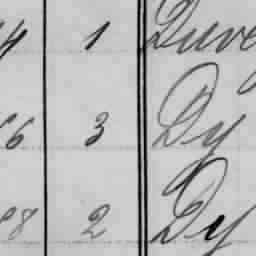 4 1 Duve
66 3 Dy
98 2 Dy